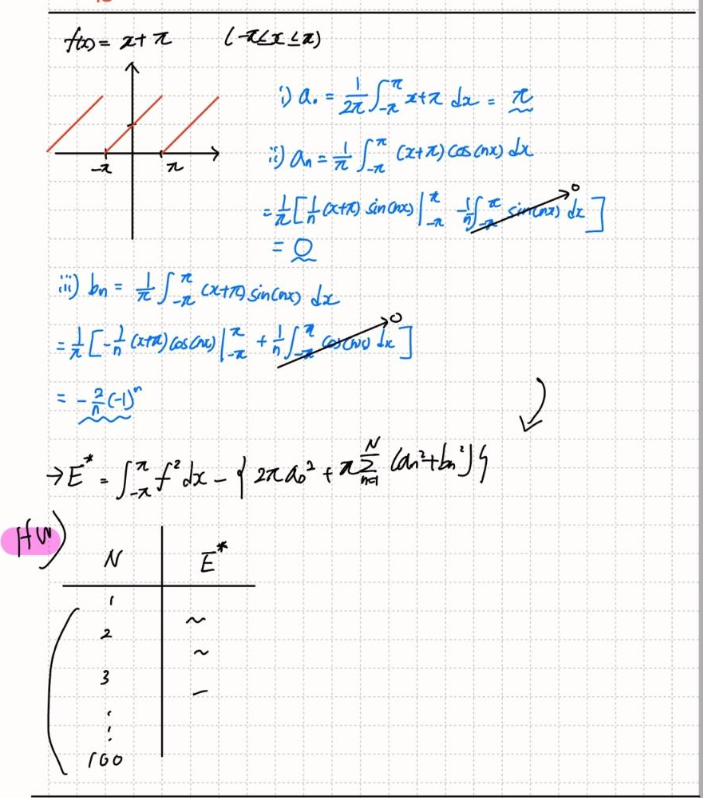 f(x) = x+π (-π≤x≤π)
-π π
i) a₀ = 1/2π ∫_{-π}^{π} x+π dx = π
ii) aₙ = 1/π ∫_{-π}^{π} (x+π) cos(nx) dx
= 1/π [ 1/n (x+π) sin(nx) |_{-π}^{π} - 1/n ∫_{-π}^{π} sin(nx) dx ] 0
= 0
iii) bₙ = 1/π ∫_{-π}^{π} (x+π) sin(nx) dx
= 1/π [ -1/n (x+π) cos(nx) |_{-π}^{π} + 1/n ∫_{-π}^{π} cos(nx) dx ] 0
= -2/n (-1)ⁿ
→ E* = ∫_{-π}^{π} f² dx - { 2πa₀² + π Σ_{n=1}^{N} (aₙ²+bₙ²) }
HW)
N E*
1
2 ~
~
3 –
⋮
100